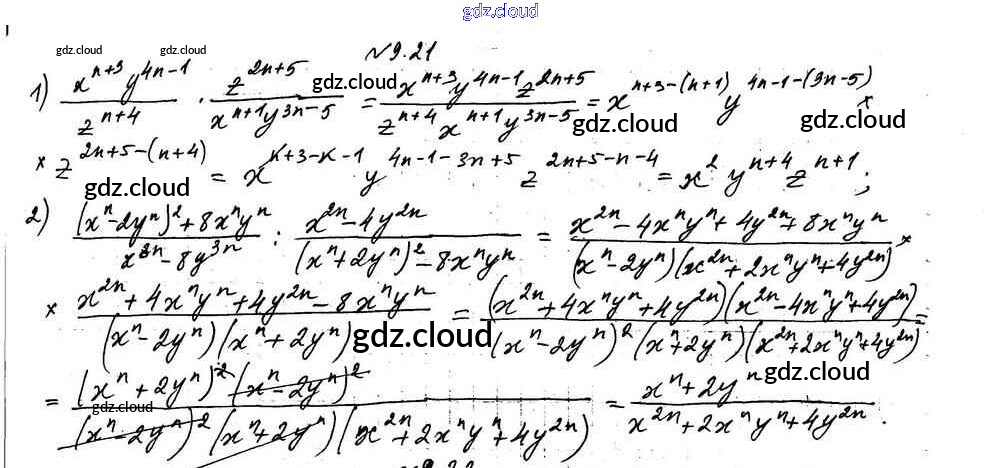 gdz.cloud
№9.21
1) \frac{x^{n+3}y^{4n-1}}{z^{n+4}} \cdot \frac{z^{2n+5}}{x^{n+1}y^{3n-5}} = \frac{x^{n+3}y^{4n-1}z^{2n+5}}{z^{n+4}x^{n+1}y^{3n-5}} = x^{n+3-(n+1)} y^{4n-1-(3n-5)} ×
× z^{2n+5-(n+4)} = x^{n+3-n-1} y^{4n-1-3n+5} z^{2n+5-n-4} = x^{2} y^{n+4} z^{n+1};
2) \frac{(x^n-2y^n)^2+8x^ny^n}{x^{3n}-8y^{3n}} : \frac{x^{2n}-4y^{2n}}{(x^n+2y^n)^2-8x^ny^n} = \frac{x^{2n}-4x^ny^n+4y^{2n}+8x^ny^n}{(x^n-2y^n)(x^{2n}+2x^ny^n+4y^{2n})} ×
× \frac{x^{2n}+4x^ny^n+4y^{2n}-8x^ny^n}{(x^n-2y^n)(x^n+2y^n)} = \frac{(x^{2n}+4x^ny^n+4y^{2n})(x^{2n}-4x^ny^n+4y^{2n})}{(x^n-2y^n)^2(x^n+2y^n)(x^{2n}+2x^ny^n+4y^{2n})} =
= \frac{(x^n+2y^n)^2(x^n-2y^n)^2}{(x^n-2y^n)^2(x^n+2y^n)(x^{2n}+2x^ny^n+4y^{2n})} = \frac{x^n+2y^n}{x^{2n}+2x^ny^n+4y^{2n}}.
gdz.cloud
gdz.cloud
gdz.cloud
gdz.cloud
gdz.cloud
gdz.cloud
gdz.cloud
gdz.cloud
gdz.cloud
gdz.cloud